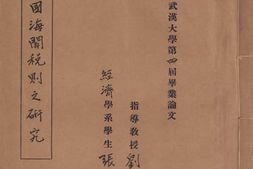 武漢大學第四屆畢業論文
國海關稅則之研究
指導教授 劉
經濟學系學生 張